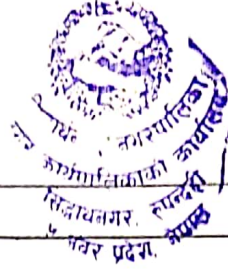 नगरपालिका
नगर कार्यपालिकाको कार्यालय
सिद्धार्थनगर, रुपन्देही
५ नंबर प्रदेश, नेपाल